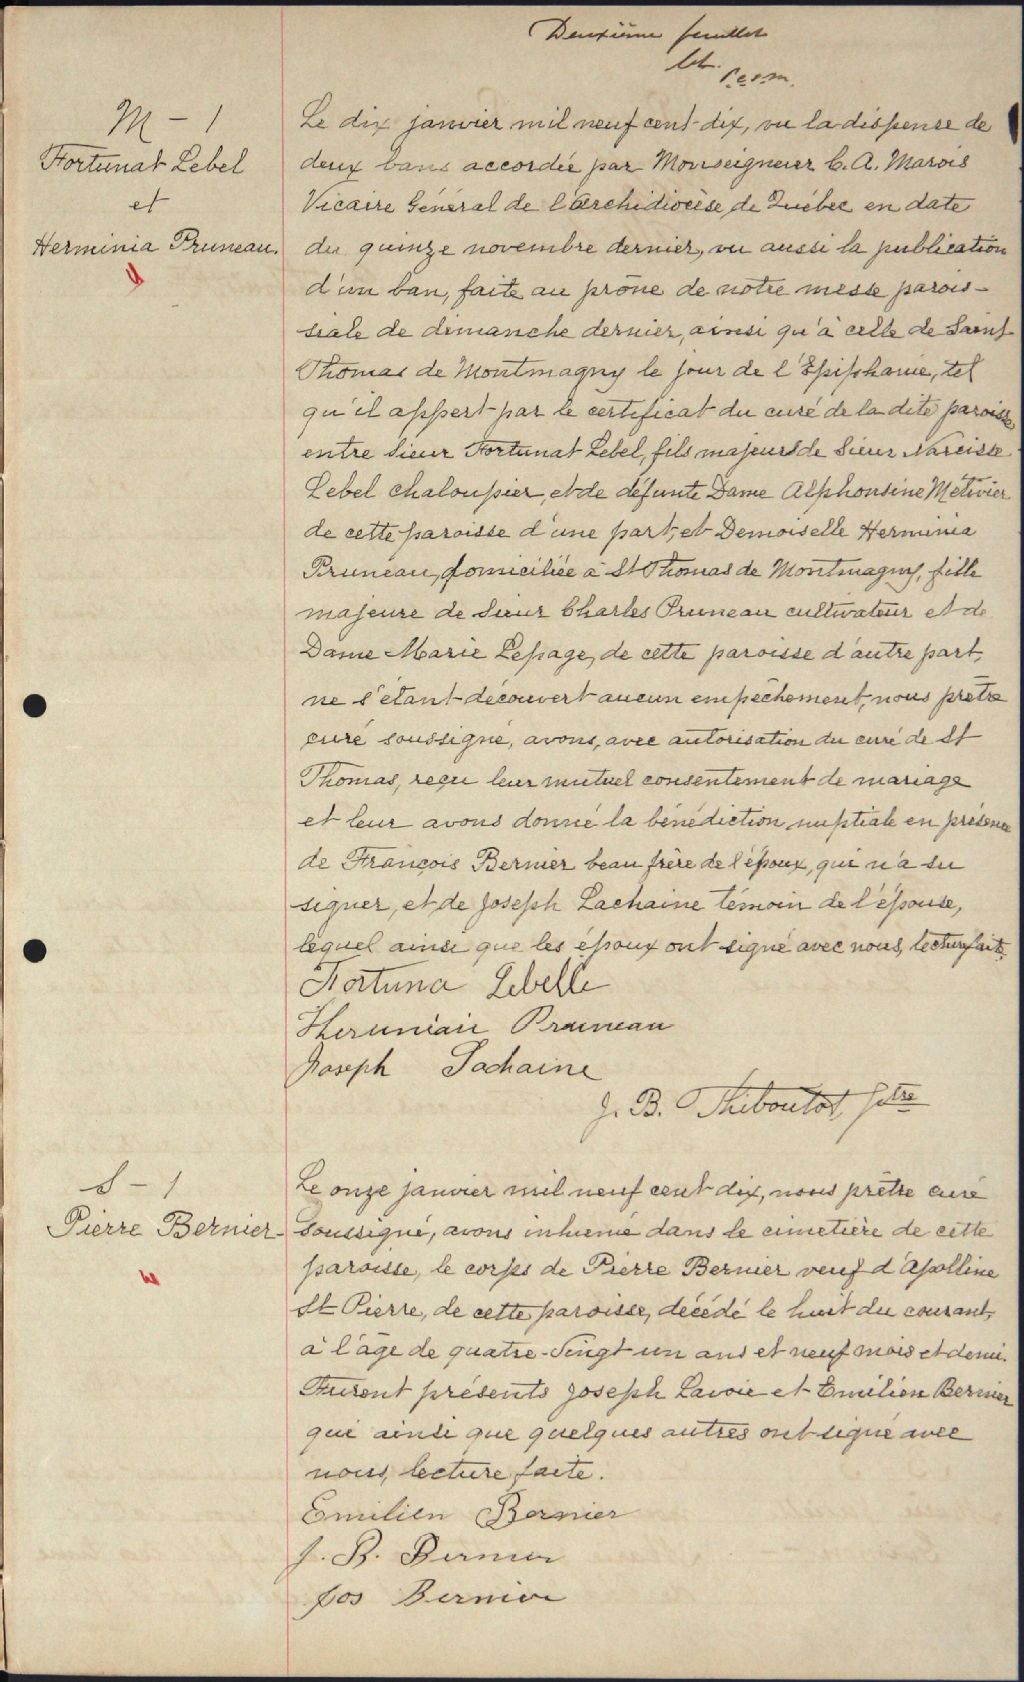 Deuxième feuillet
M - 1
Fortunat Lebel
et
Herminia Pruneau.
Le dix janvier mil neuf cent dix, vu la dispense de
deux bans accordée par Monseigneur C. A. Marois
Vicaire Général de l'archidiocèse, de Québec en date
du quinze novembre dernier, vu aussi la publication
d'un ban, faite au prône de notre messe parois-
siale de dimanche dernier, ainsi qu'à celle de Saint
Thomas de Montmagny le jour de l'Epiphanie, tel
qu'il appert par le certificat du curé de la dite paroisse
entre Sieur Fortunat Lebel, fils majeur de Sieur Narcisse
Lebel chaloupier, et de défunte Dame Alphonsine Métivier
de cette paroisse d'une part, et Demoiselle Herminia
Pruneau, domiciliée à St Thomas de Montmagny, fille
majeure de Sieur Charles Pruneau cultivateur et de
Dame Marie Lepage, de cette paroisse d'autre part,
ne s'étant découvert aucun empêchement, nous prêtre
curé soussigné, avons, avec autorisation du curé de St
Thomas, reçu leur mutuel consentement de mariage
et leur avons donné la bénédiction nuptiale en présence
de François Bernier beau frère de l'époux, qui n'a su
signer, et de Joseph Lachaine témoin de l'épouse,
lequel ainsi que les époux ont signé avec nous, lecture faite.
Fortuna Lebelle
Pruneau
Joseph Lachaine
J. B. Thiboutot, Ptre
S - 1
Pierre Bernier
Le onze janvier mil neuf cent dix, nous prêtre curé
soussigné, avons inhumé dans le cimetière de cette
paroisse, le corps de Pierre Bernier veuf d'Apolline
St Pierre, de cette paroisse, décédé le huit du courant,
à l'âge de quatre-vingt-un ans et neuf mois et demi.
Furent présents Joseph Lavoie et Emilien Bernier
qui ainsi que quelques autres ont signé avec
nous, lecture faite.
Emilien Bernier
J. B. Bernier
Jos Bernier